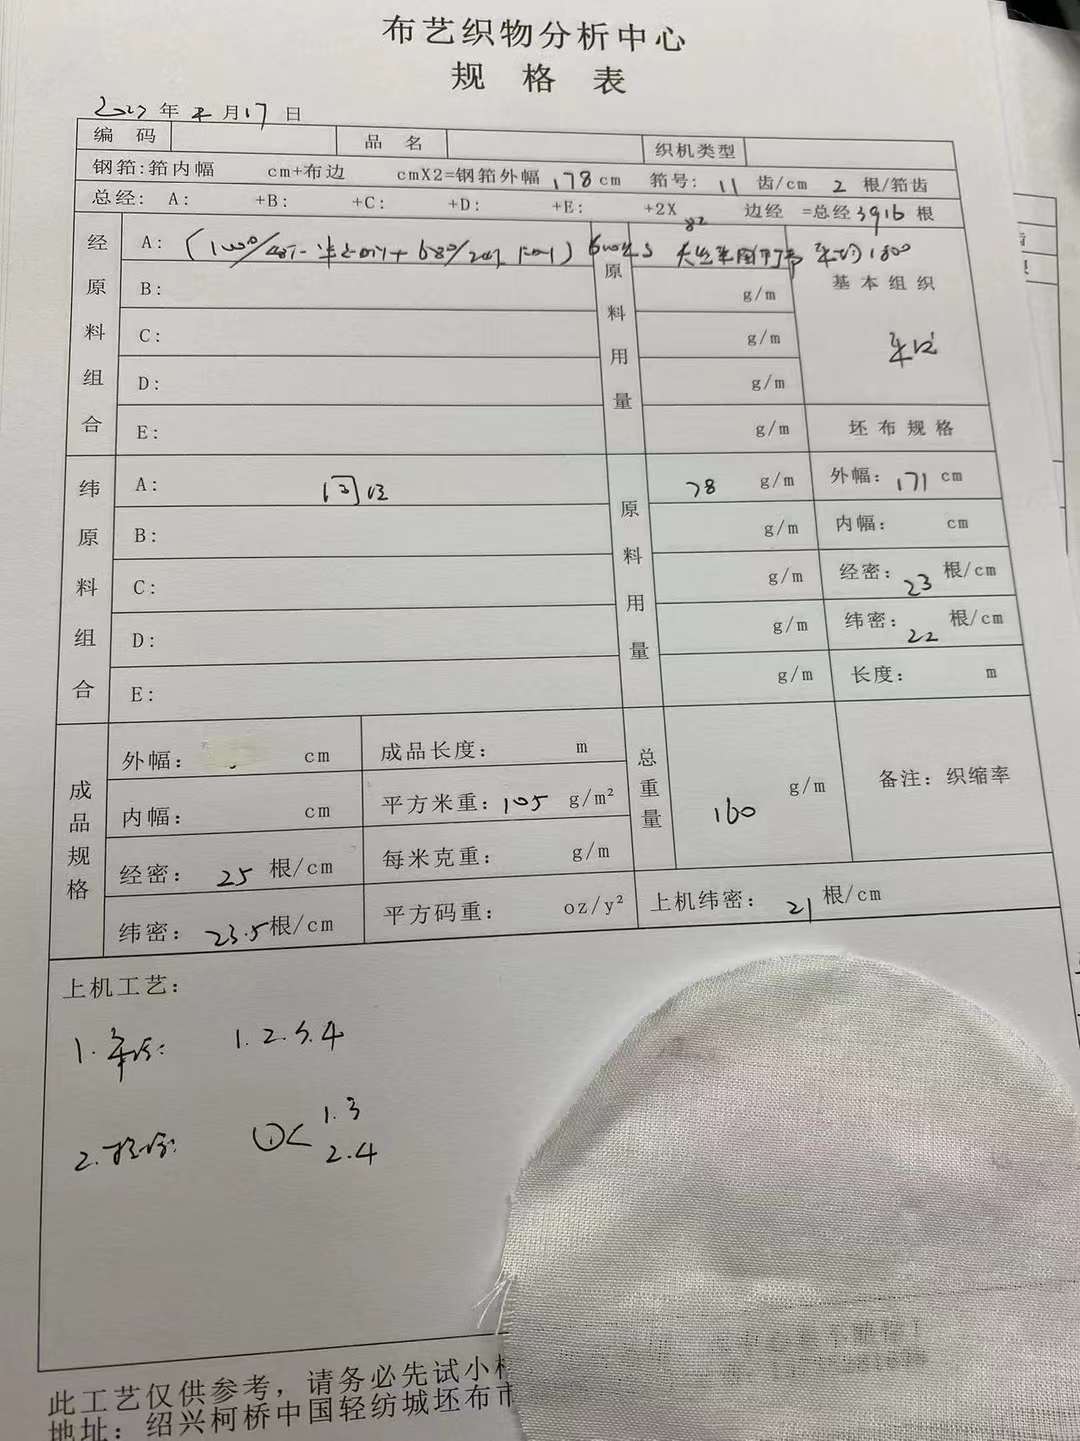 布艺织物分析中心
规 格 表
年 月17日
编 码 品 名 织机类型
钢筘:筘内幅 cm+布边 cmX2=钢筘外幅 178cm 筘号: 11 齿/cm 2 根/筘齿
总经: A: +B: +C: +D: +E: +2X 边经 =总经3916根
经原料组合
A:
B: g/m
C: g/m
D: g/m
E: g/m
原料用量
基本组织
坯布规格
纬原料组合
A: 同经 78 g/m
B: g/m
C: g/m
D: g/m
E: g/m
原料用量
外幅: 171 cm
内幅: cm
经密: 23 根/cm
纬密: 22 根/cm
长度: m
成品规格
外幅: cm 成品长度: m
内幅: cm 平方米重: 105 g/m²
经密: 25 根/cm 每米克重: g/m
纬密: 23.5根/cm 平方码重: oz/y²
总重量 160 g/m
备注: 织缩率
上机纬密: 21 根/cm
上机工艺:
1. 1.2.3.4
2. ①< 1.3
2.4
此工艺仅供参考，请务必先试小
地址: 绍兴柯桥中国轻纺城坯布市